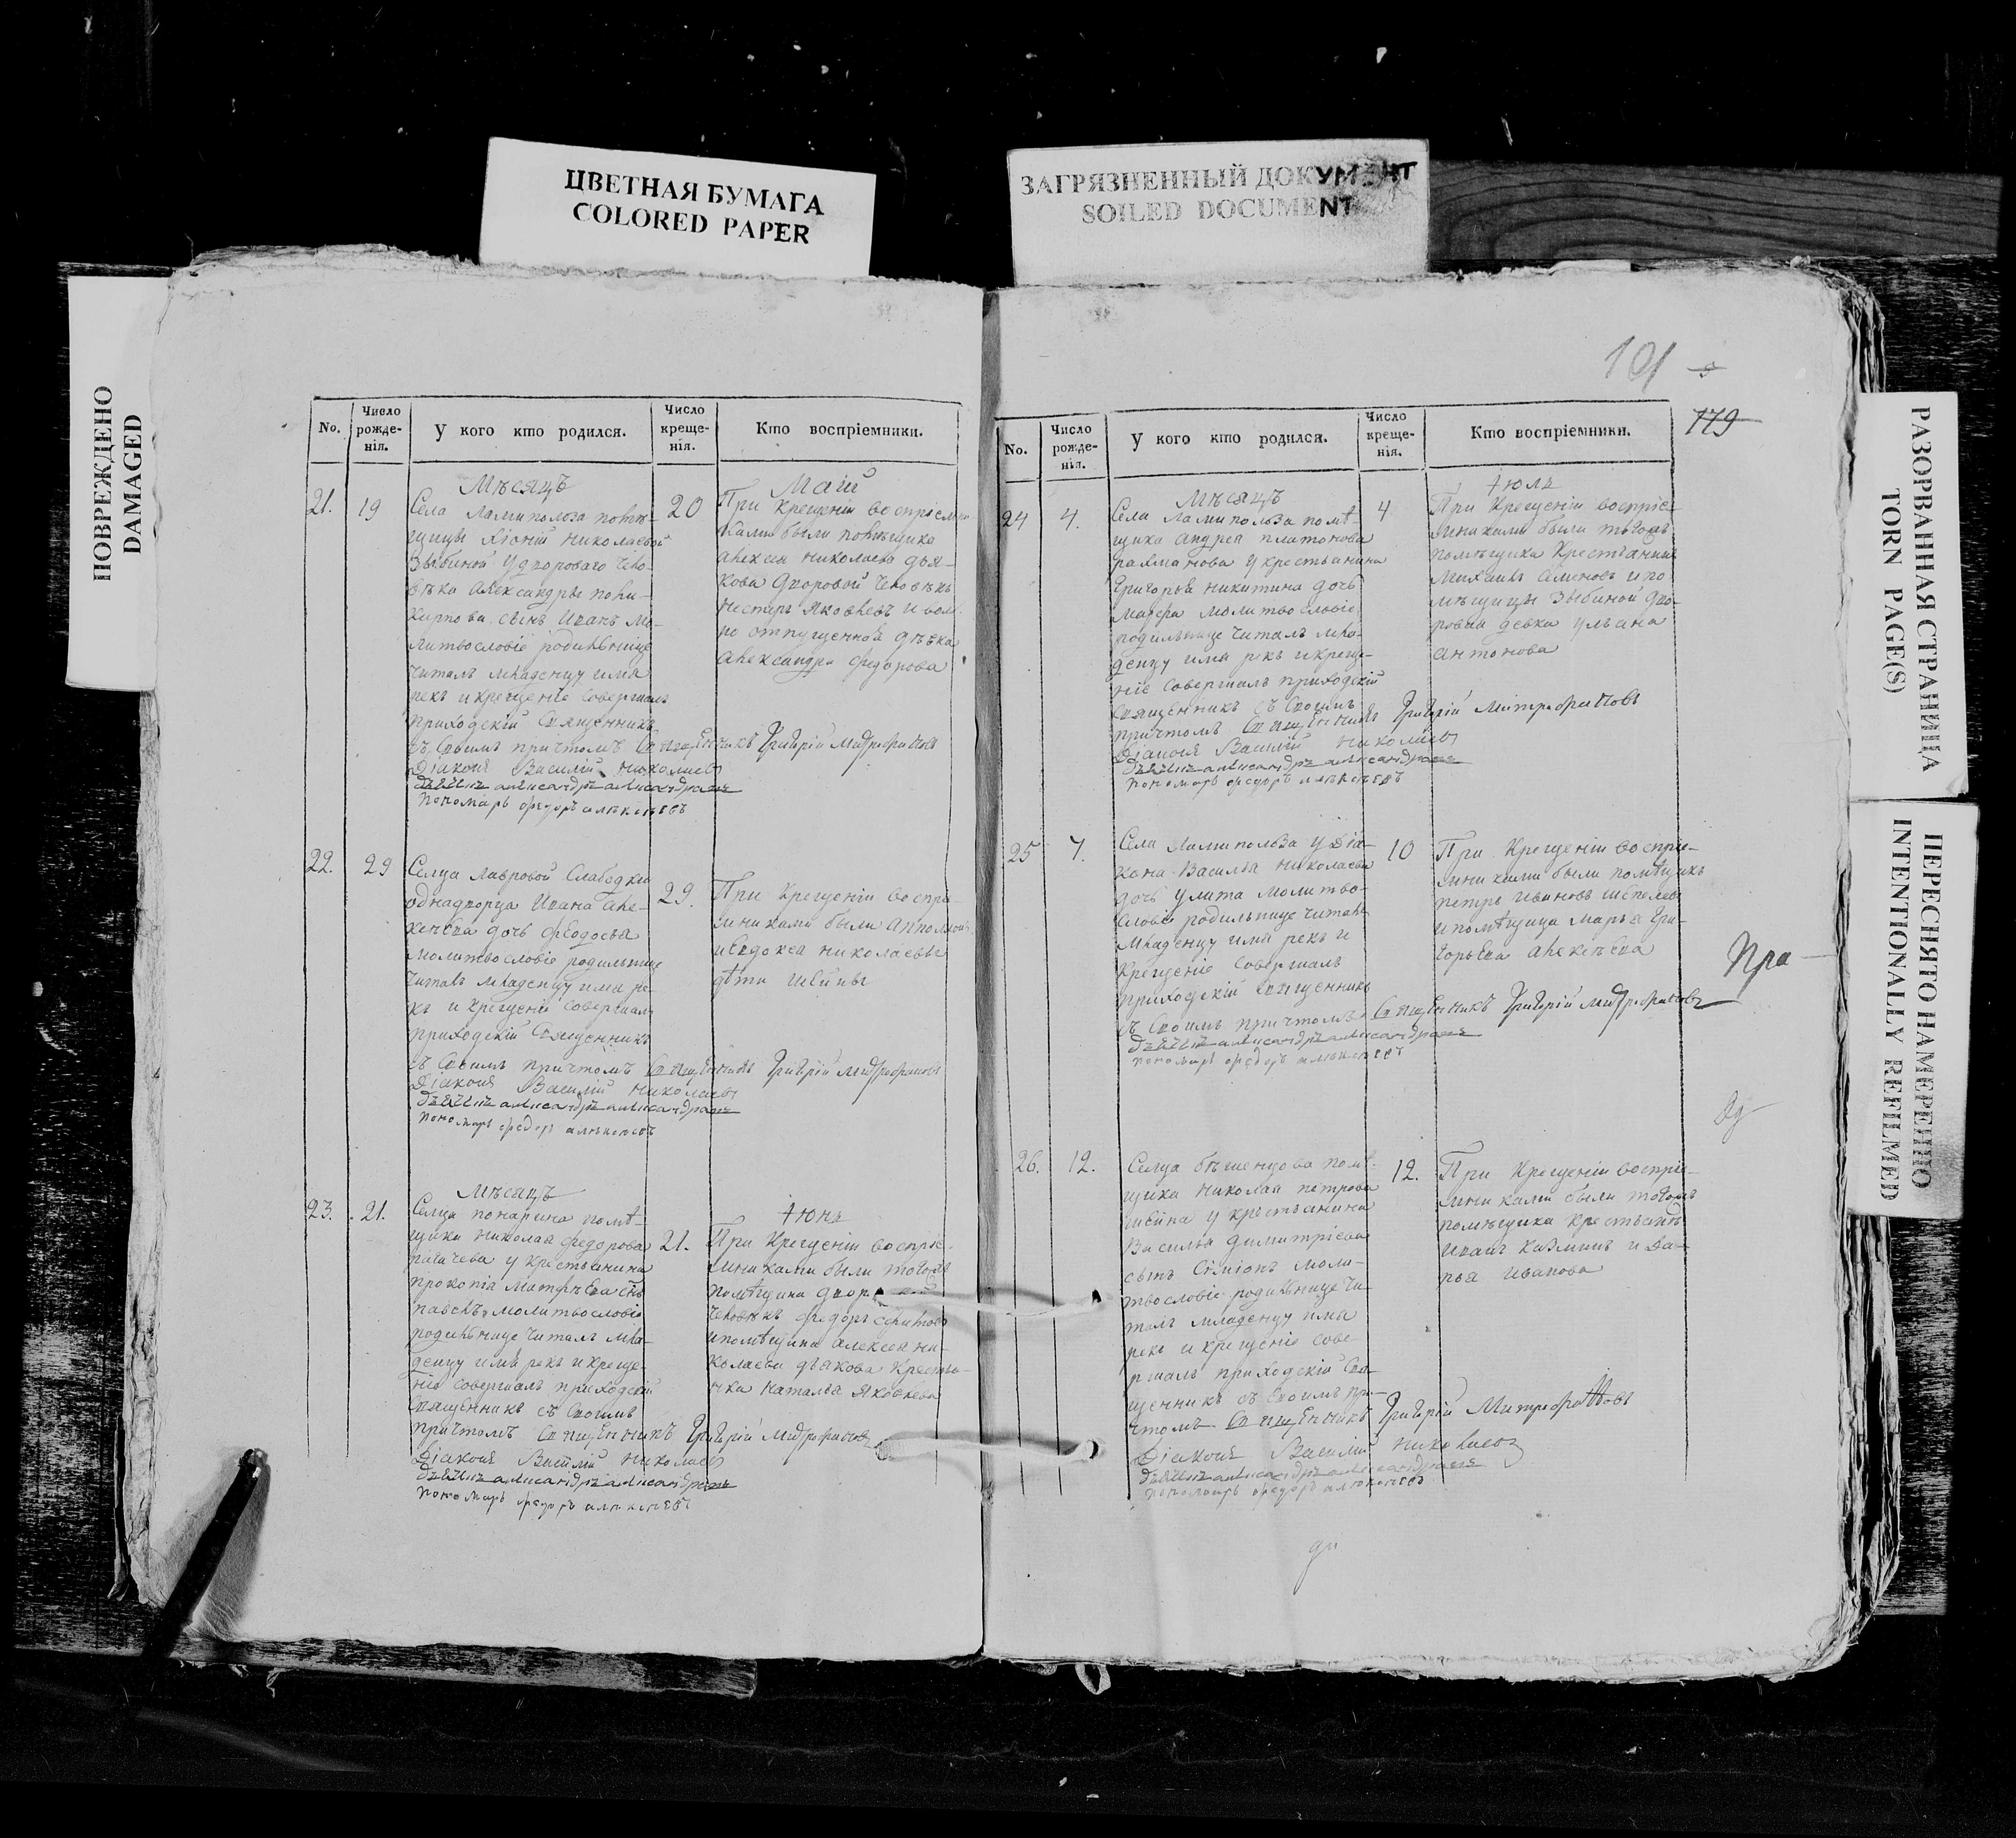 ЦВЕТНАЯ БУМАГА
COLORED PAPER
ЗАГРЯЗНЕННЫЙ ДОКУМЕНТ
SOILED DOCUMENT
ПОВРЕЖДЕНО
DAMAGED
No.
Число рожде-нія.
У кого кто родился.
Число креще-нія.
Кто воспріемники.
Мѣсяцъ
Май
21.
19
Села Ламиполоза помѣ-
щицы Николаевой
Зыбиной у двороваго чело-
вѣка Александры
сынъ Иванъ мо-
литвословіе родильнице
читалъ младенцу имя
рекъ и крещеніе совершалъ
приходскій Священникъ
съ Своимъ причтомъ Священникъ Григорій Митрофановъ
Діаконъ Василій Николаевъ
дьячикъ алисандръ алисандровъ
Пономарь федоръ алексѣевъ
20
При крещеніи воспріем
никами были помѣщика
алексея николаева дья-
кова дворовой человѣкъ
нестеръ Яковлевъ и вол
но отпущенной дѣвка
александра федорова
22.
29
Сельца лавровой Слабодки
однадворца Ивана але-
ксѣева дочь феодосья
молитвословіе родильнице
читалъ младенцу имя ре
къ и крещеніе совершалъ
приходскій Священникъ
съ Своимъ причтомъ Священникъ Григорій Митрофановъ
Діаконъ Василій Николаевъ
дьячикъ алисандръ алисандровъ
пономарь федоръ алексѣевъ
29.
При крещеніи воспріе
мниками были
и Евдокея николаевы
дѣти
Мѣсяцъ
Іюнь
23.
21.
Сельца понарина помѣ-
щика Николая федорова
рагачева у крестьянина
прокопія матфѣева сынъ
павелъ молитвословіе
родильнице читалъ мла-
денцу имя рекъ и креще-
ніе совершалъ приходскій
Священникъ съ Своимъ
причтомъ Священникъ Григорій Митрофановъ
Діаконъ Василій Николаевъ
дьячикъ алисандръ алисандровъ
пономарь федоръ алексѣевъ
21.
При крещеніи воспріе
мниками были тогожъ
помѣщика
человѣкъ федоръ
и помѣщика алексея ни-
колаева дьякова крестья-
нка наталья Яковлева
101
179
No.
Число рожде-нія.
У кого кто родился.
Число креще-нія.
Кто воспріемники.
Мѣсяцъ
Іюль
24
4.
Села Ламиполоза помѣ-
щика андрея платонова
рахманова у крестьянина
Григорья никитина дочь
марфа молитвословіе
родильнице читалъ мла-
денцу имя рекъ и креще-
ніе совершалъ приходскій
Священникъ съ Своимъ
причтомъ Священникъ Григорій Митрофановъ
Діаконъ Василій Николаевъ
дьячикъ алисандръ алисандровъ
пономарь федоръ алексѣевъ
4
При крещеніи воспріе-
мниками были тогожъ
помѣщика крестьянинъ
михаилъ семеновъ и по
мѣщицы Зыбиной дво-
ровая девка ульяна
антонова
25
7.
Села Ламиполоза у Діа-
кона Василья николаева
дочь улита молитво-
словіе родильнице читалъ
младенцу имя рекъ и
крещеніе совершалъ
приходскій Священникъ
съ Своимъ причтомъ Священникъ Григорій Митрофановъ
дьячикъ алисандръ алисандровъ
пономарь федоръ алексѣевъ
10
При крещеніи воспріе-
мниками были помѣщикъ
петръ ивановъ
и помѣщица марья Гри-
горьева алексѣева
Пра
26.
12.
Сельца бѣшенцова помѣ-
щика николая петрова
у крестьянина
Василья димитріева
сынъ Симіонъ моли-
твословіе родильнице чи-
талъ младенцу имя
рекъ и крещеніе сове
ршалъ приходскій Свя-
щенникъ съ Своимъ при-
чтомъ Священникъ Григорій Митрофановъ
Діаконъ Василій Николаевъ
дьячикъ алисандръ алисандровъ
пономарь федоръ алексѣевъ
12.
При крещеніи воспріе-
мниками были тогожъ
помѣщика крестьянинъ
иванъ казминъ и да-
рья иванова
РАЗОРВАННАЯ СТРАНИЦА
TORN PAGE(S)
ПЕРЕСНЯТО НАМЕРЕННО
INTENTIONALLY REFILMED